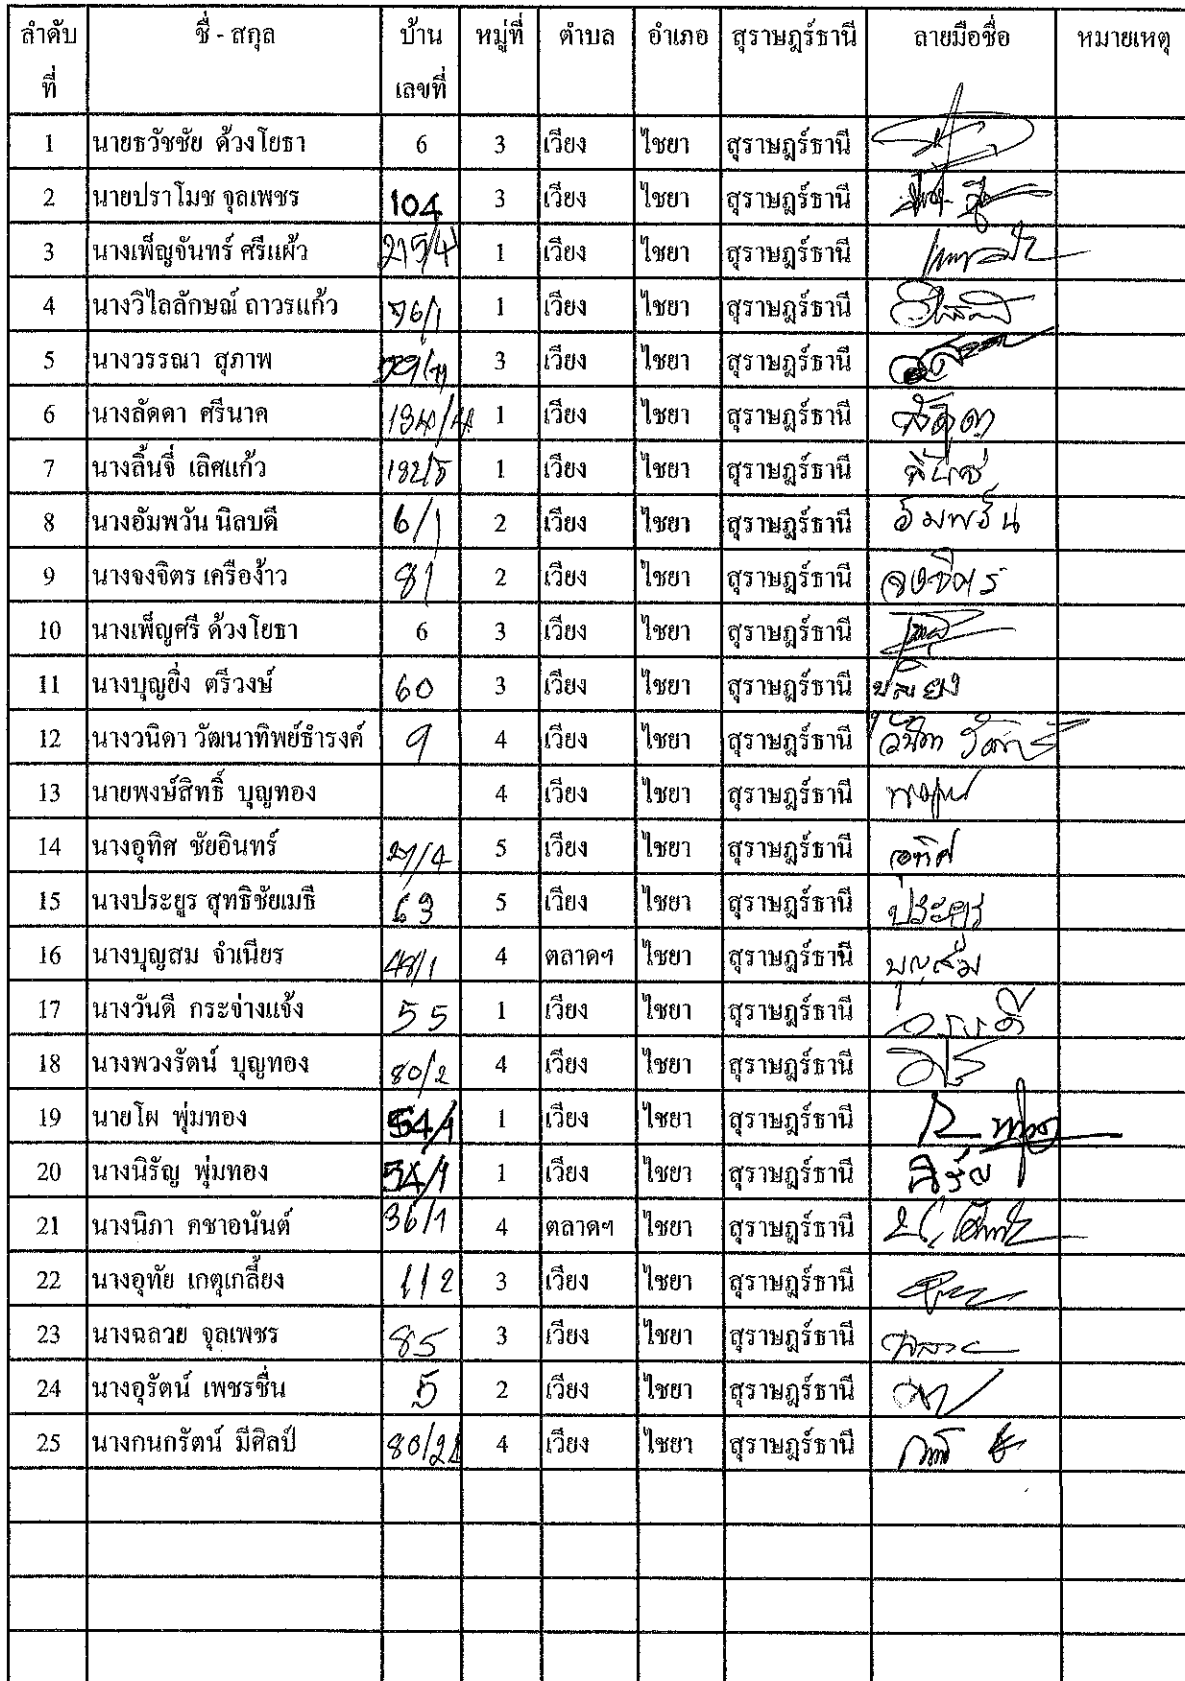 ลำดับที่ ชื่ - สกุล บ้านเลขที่ หมู่ที่ ตำบล อำเภอ สุราษฎร์ธานี ลายมือชื่อ หมายเหตุ
1 นายธวัชชัย ด้วงโยธา 6 3 เวียง ไชยา สุราษฎร์ธานี
2 นายปราโมช จุลเพชร 104 3 เวียง ไชยา สุราษฎร์ธานี
3 นางเพ็ญจันทร์ ศรีแผ้ว 215/4 1 เวียง ไชยา สุราษฎร์ธานี
4 นางวิไลลักษณ์ ถาวรแก้ว 76/1 1 เวียง ไชยา สุราษฎร์ธานี
5 นางวรรณา สุภาพ 3 เวียง ไชยา สุราษฎร์ธานี
6 นางลัดดา ศรีนาค 1 เวียง ไชยา สุราษฎร์ธานี ลัดดา
7 นางลิ้นจี่ เลิศแก้ว 192/5 1 เวียง ไชยา สุราษฎร์ธานี
8 นางอัมพวัน นิลบดี 6/1 2 เวียง ไชยา สุราษฎร์ธานี อัมพวัน
9 นางจงจิตร เครือง้าว 81 2 เวียง ไชยา สุราษฎร์ธานี จงจิตร
10 นางเพ็ญศรี ด้วงโยธา 6 3 เวียง ไชยา สุราษฎร์ธานี
11 นางบุญยิ่ง ตรีวงษ์ 60 3 เวียง ไชยา สุราษฎร์ธานี
12 นางวนิดา วัฒนาทิพย์ธำรงค์ 9 4 เวียง ไชยา สุราษฎร์ธานี
13 นายพงษ์สิทธิ์ บุญทอง 4 เวียง ไชยา สุราษฎร์ธานี
14 นางอุทิศ ชัยอินทร์ 27/4 5 เวียง ไชยา สุราษฎร์ธานี อุทิศ
15 นางประยูร สุทธิชัยเมธี 63 5 เวียง ไชยา สุราษฎร์ธานี ประยูร
16 นางบุญสม จำเนียร 48/1 4 ตลาดฯ ไชยา สุราษฎร์ธานี บุญสม
17 นางวันดี กระจ่างแจ้ง 55 1 เวียง ไชยา สุราษฎร์ธานี
18 นางพวงรัตน์ บุญทอง 80/2 4 เวียง ไชยา สุราษฎร์ธานี
19 นายโผ พุ่มทอง 54/1 1 เวียง ไชยา สุราษฎร์ธานี
20 นางนิรัญ พุ่มทอง 54/1 1 เวียง ไชยา สุราษฎร์ธานี นิรัญ
21 นางนิภา คชาอนันต์ 36/1 4 ตลาดฯ ไชยา สุราษฎร์ธานี
22 นางอุทัย เกตุเกลี้ยง 112 3 เวียง ไชยา สุราษฎร์ธานี
23 นางฉลวย จุลเพชร 85 3 เวียง ไชยา สุราษฎร์ธานี
24 นางอุรัตน์ เพชรชื่น 5 2 เวียง ไชยา สุราษฎร์ธานี
25 นางกนกรัตน์ มีศิลป์ 4 เวียง ไชยา สุราษฎร์ธานี